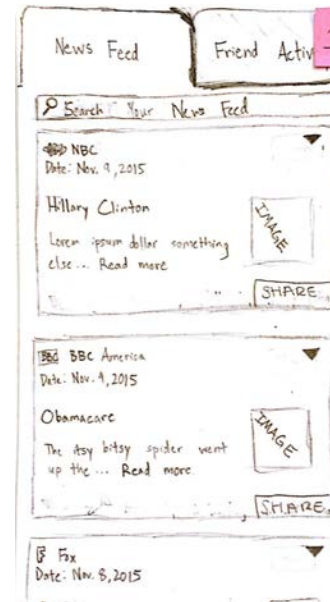 News Feed
Friend Activ
Search Your News Feed
NBC
Date: Nov. 9, 2015
Hillary Clinton
Lorem ipsum dollar something
else... Read more
IMAGE
SHARE
BBC BBC America
Date: Nov. 9, 2015
Obamacare
The itsy bitsy spider went
up the ... Read more
IMAGE
SHARE
F Fox
Date: Nov. 8, 2015